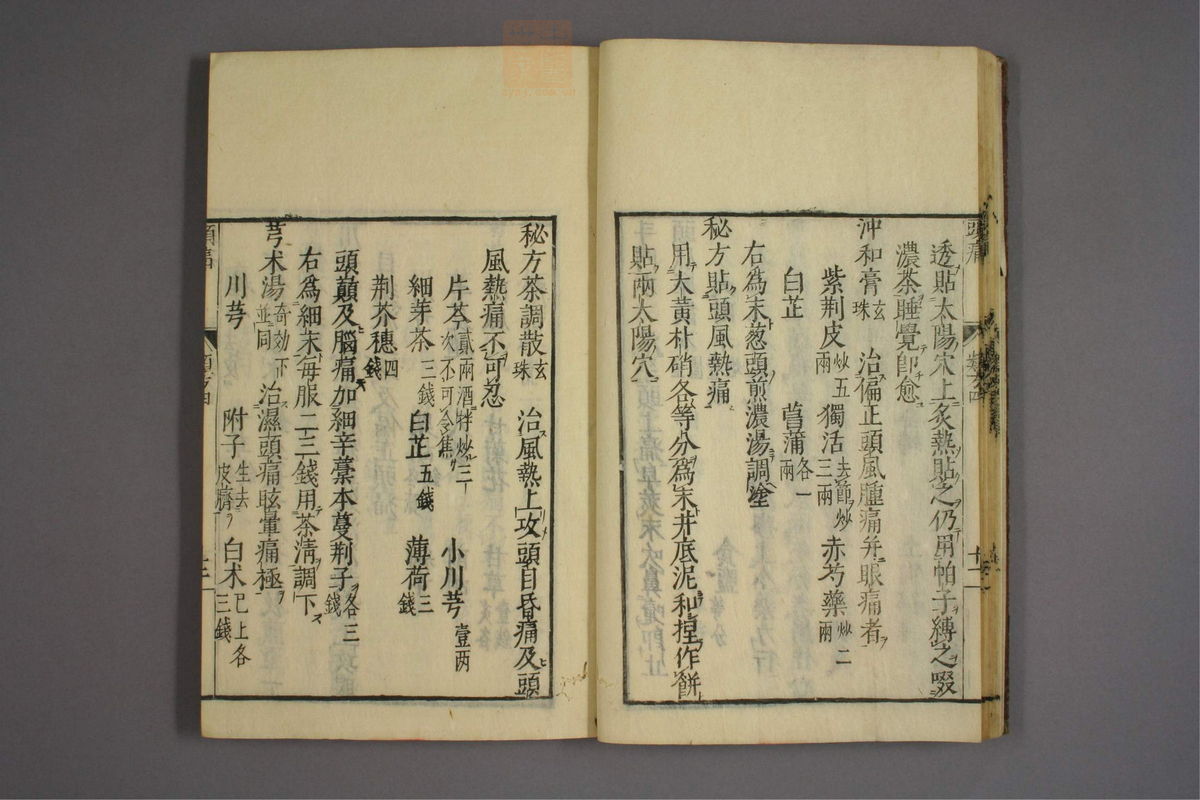 頭痛
透貼太陽穴上炙熱貼之仍用帕子縛之啜
濃茶睡覺卽愈
沖和膏 玄珠 治偏正頭風腫痛幷眼痛者
紫荆皮 炒五兩 獨活 去節炒三兩 赤芍藥 炒二兩
白芷 菖蒲 各一兩
右爲末葱頭煎濃湯調塗
秘方貼頭風熱痛
用大黄朴硝各等分爲末井底泥和捏作餅
貼兩太陽穴
秘方茶調散 玄珠 治風熱上攻頭目昏痛及頭
風熱痛不可忍
片芩 貳兩酒拌炒三次不可令焦 小川芎 壹两
細芽茶 三錢 白芷 五錢 薄荷 三錢
荆芥穗 四錢
頭巔及腦痛加細辛藁本蔓荆子 各三錢
右爲細末每服二三錢用茶淸調下
芎朮湯 竒効下並同 治濕頭痛眩暈痛極
川芎 附子 生去皮臍 白朮 已上各三錢
頭痛